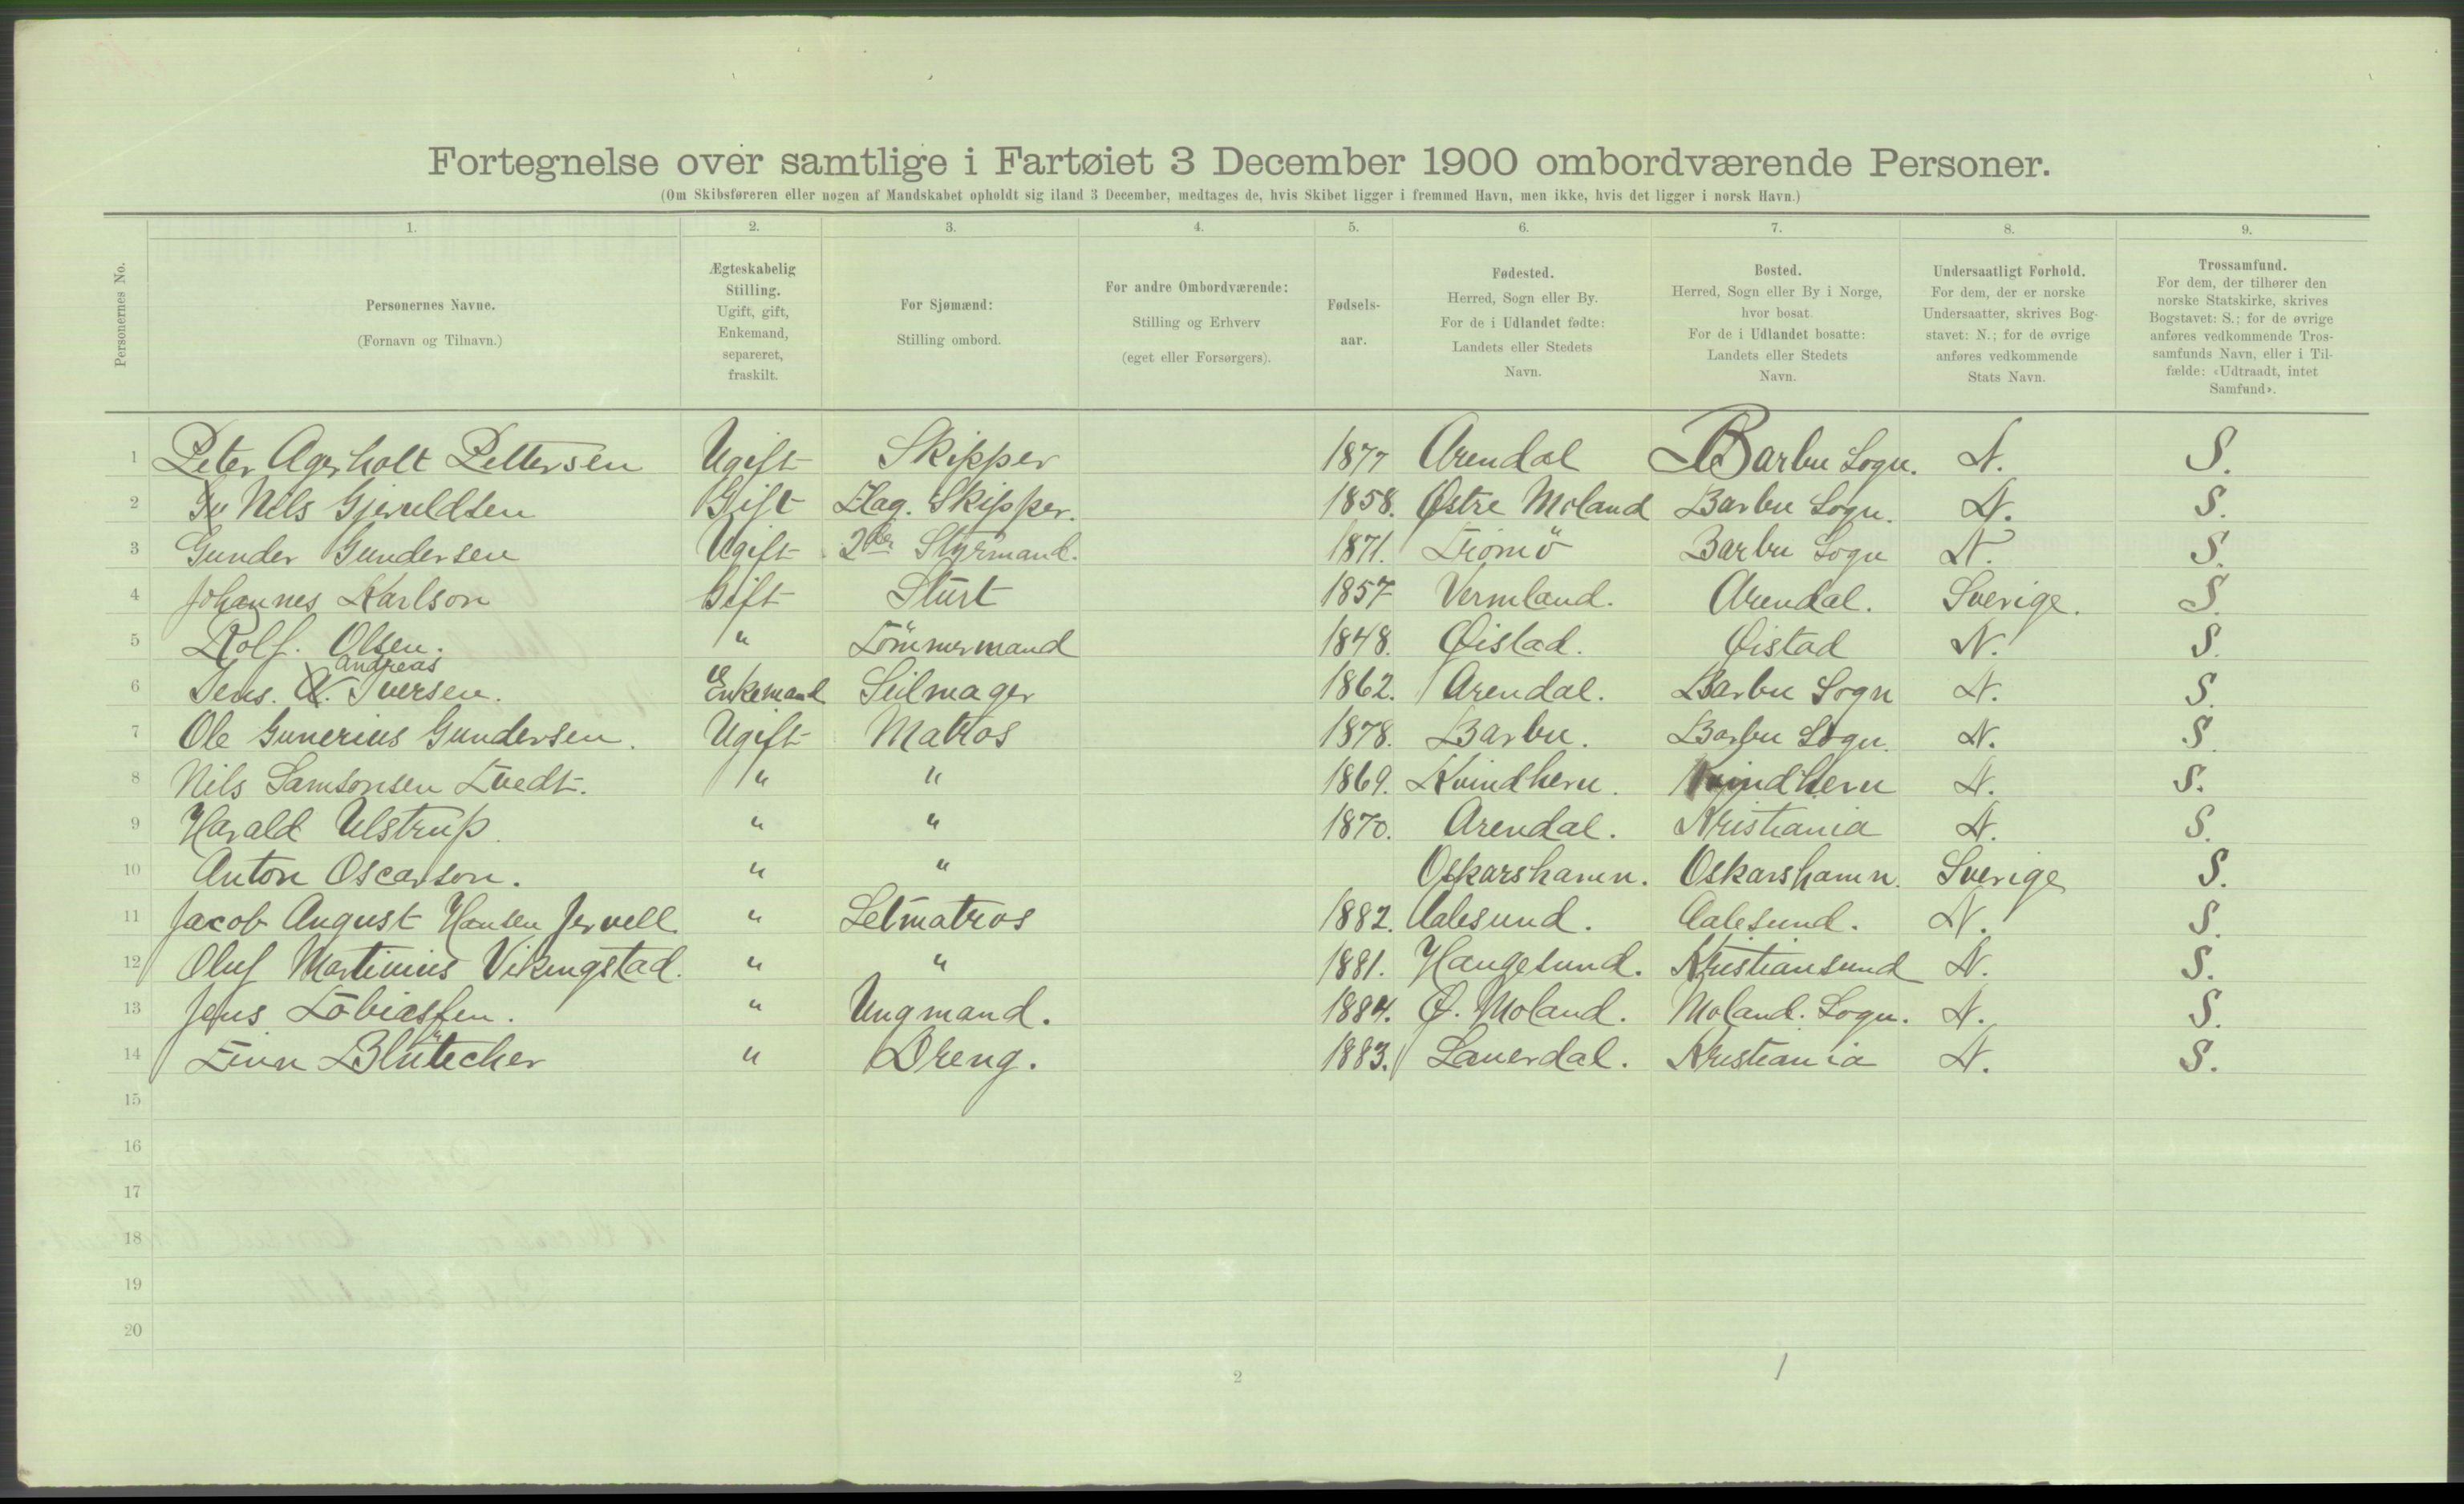 Fortegnelse over samtlige i Fartøiet 3 December 1900 ombordværende Personer.
(Om Skibsføreren eller nogen af Mandskabet opholdt sig iland 3 December, medtages de, hvis Skibet ligger i fremmed Havn, men ikke, hvis det ligger i norsk Havn.)
Personernes No.
1.
Personernes Navne.
(Fornavn og Tilnavn.)
2.
Ægteskabelig
Stilling.
Ugift, gift,
Enkemand,
separeret,
fraskilt.
3.
For Sjømænd:
Stilling ombord.
4.
For andre Ombordværende:
Stilling og Erhverv
(eget eller Forsørgers).
5.
Fødsels-
aar.
6.
Fødested.
Herred, Sogn eller By.
For de i Udlandet fødte:
Landets eller Stedets
Navn.
7.
Bosted.
Herred, Sogn eller By i Norge,
hvor bosat
For de i Udlandet bosatte:
Landets eller Stedets
Navn.
8.
Undersaatligt Forhold.
For dem, der er norske
Undersaatter, skrives Bog-
stavet: N.; for de øvrige
anføres vedkommende
Stats Navn.
9.
Trossamfund.
For dem, der tilhører den
norske Statskirke, skrives
Bogstavet: S.; for de øvrige
anføres vedkommende Tros-
samfunds Navn, eller i Til-
fælde: «Udtraadt, intet
Samfund».
1 Peter Agerholt Pettersen Ugift Skipper 1877 Arendal Barbu Sogn. N. S.
2 Nils Gjeruldsen Gift Flag. Skipper. 1858. Østre Moland Barbu Sogn. N. S.
3 Gunder Gundersen Ugift 2den Styrmand. 1871. Tromö Barbu Sogn N. S.
4 Johannes Karlson Gift Sturt 1857 Vermland. Arendal. Sverige. S.
5 Rolf. Olsen. " Tömmermand 1848. Øistad. Øistad N. S.
Andreas
6 Jens. Iversen. Enkemand Seilmager 1862. Arendal. Barbu Sogn N. S.
7 Ole Gunerius Gundersen. Ugift Matros 1878. Barbu. Barbu Sogn. N. S.
8 Nils Samsonsen Tvedt. " " 1869. Kvindhern. Kvindhern N. S.
9 Harald Ulstrup. " " 1870. Arendal. Kristiania N. S.
10 Anton Oscarson. " " Oskarshamn. Oskarshamn. Sverige S.
11 Jacob August Hansen Jervell " Letmatros 1882. Aalesund. Aalesund. N. S.
12 Oluf Martinius Vikingstad. " " 1881. Haugesund. Kristiansund N. S.
13 Jens Tobiassen. " Ungmand. 1884. Ø. Moland. Moland. Sogn. N. S.
14 Blütecher " Dreng. 1883. Kristiania N. S.
15
16
17
18
19
20
2